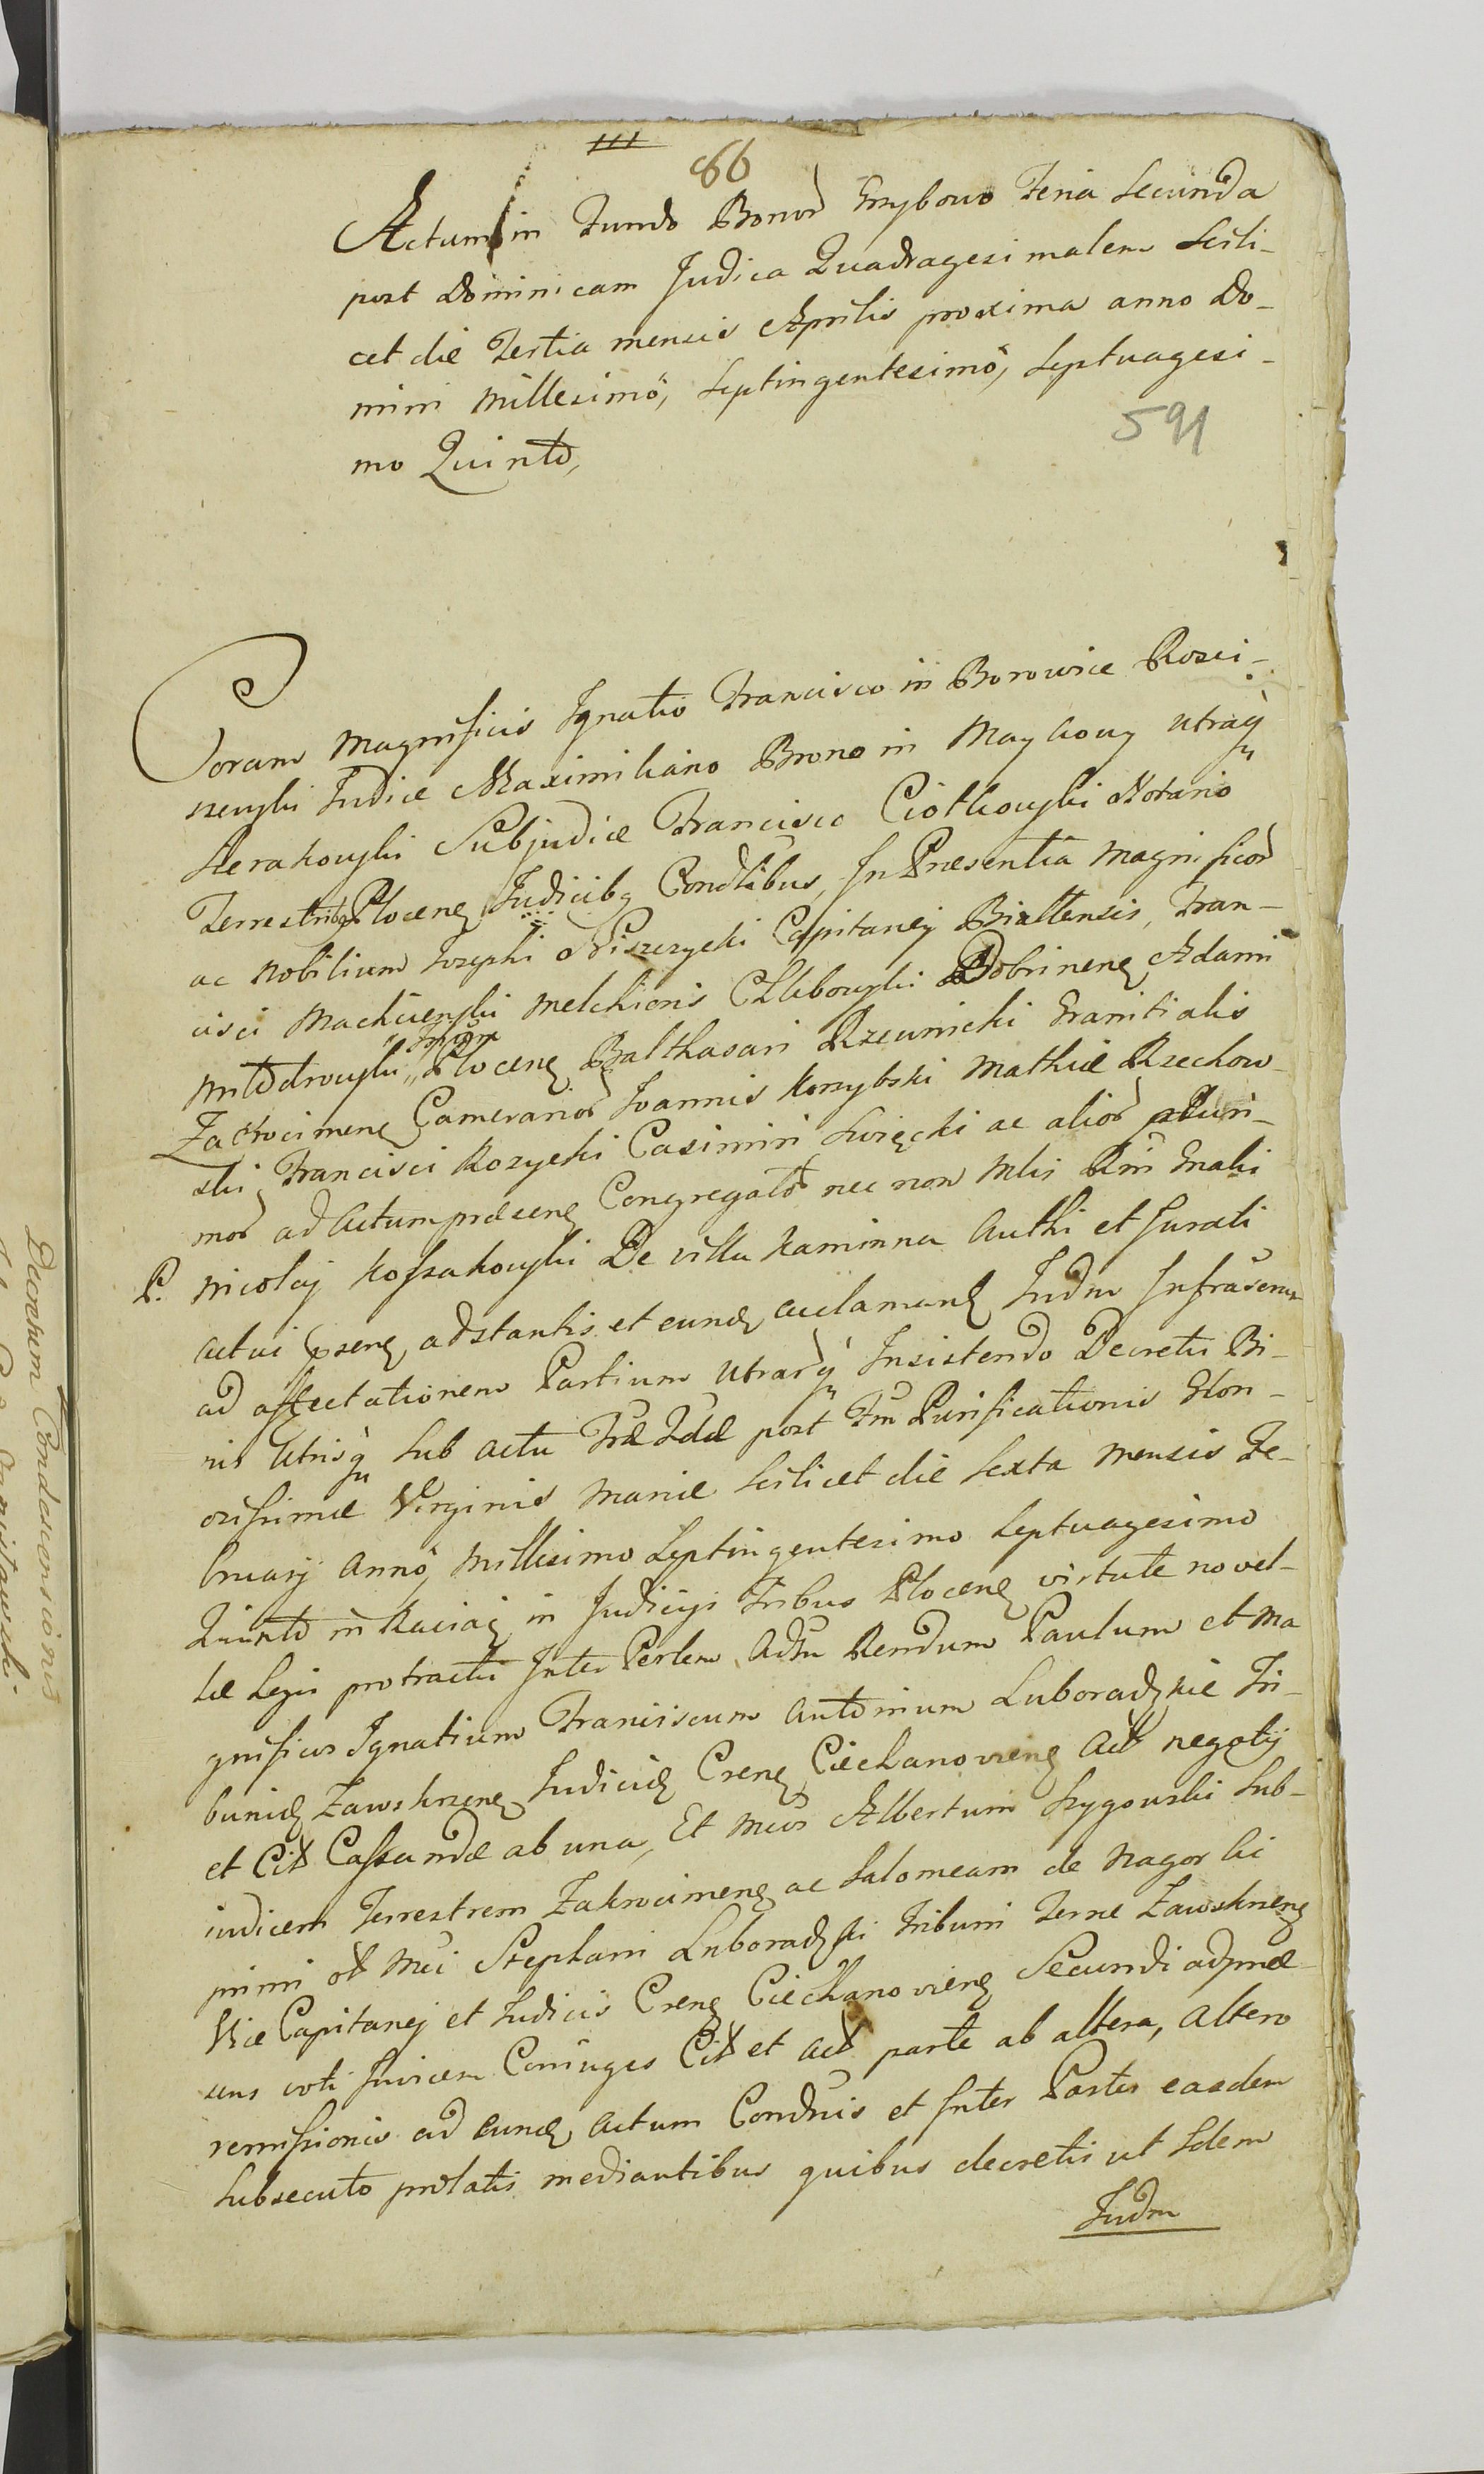 66
Actum in Fundo Bonor Grzybowo Feria Secunda
post Dominicam Judica Quadragesimalem Scili-
cet die Tertia mensis Aprilis proxima anno Do-
mini Millesimo, Septingentesimo, Septuagesi-
mo Quinto,
591
Coram Magnificis Ignatio Francisco in Borowice Rosci-
szewski Judice Maximiliano Bruno in Maykowy utraq
Sierakowski Subjudice Francisco Ciółkowski Notario
Terrestribg Plocens Judicibg Condlibus, In Praesentia Magnificor
ac Nobilium Josephi Niszczycki Capitanej Bialtensis, Fran-
cisci Machcienski Melchioris Chlebowski Dobrinens Adami
Młodzowski Plocens Balthasari Rzewnicki Granitialis
Zakrocimens Camerarior Joannis Korzybski Mathiæ Rzechow
ski Francisci Kozycki Casimiri Święcki ac alior pluri-
mor ad Actum præsens Congregator nec non Mlis Rni Gnalis
P. Nicolaj Kossakowski De villa Kaminna Authi et Jurati
actui psens adstantis et eund acclamand Judm Infrascrum
ad affectationem Partium utrarq Insistendo Decretis Bi-
nis Utrisq sub actu Fræ 2dæ post Ftm Purificationis Glon-
orissimæ Virginis Mariæ Scilicet die Sexta Mensis Fe-
bruarij Anno, Millesimo Septingentesimo Septuagesimo
Quinto in Raciąż in Judicijs Tribus Plocens virtute novel-
læ Legis protractis Inter Perlem Adm Rendum Paulum et Ma
gnificos Ignatium Franciscum Antonium Luboradzkie Tri-
bunid Zawskrzens Judicid Crens Ciechanoviens Act negotij
et Cit Cassandæ ab una, Et Mcos Albertum Szygowski Sub-
iudicem Terrestrem Zakrocimens ac Salomeam de Nagorki
primi ot Mci Stephani Luboradzki Tribuni Terræ Zawskrzens
Vice Capitanej et Judicis Crens Ciechanoviens Secundi adpræ-
sens voti Invicem Coniuges Cit et Act parte ab altera, Altero
remissionis ad eund actum Condnis et Inter Partes easdem
subsecuto prolatis mediantibus quibus decretis ut Idem
Judm
Decretum Condescensionis